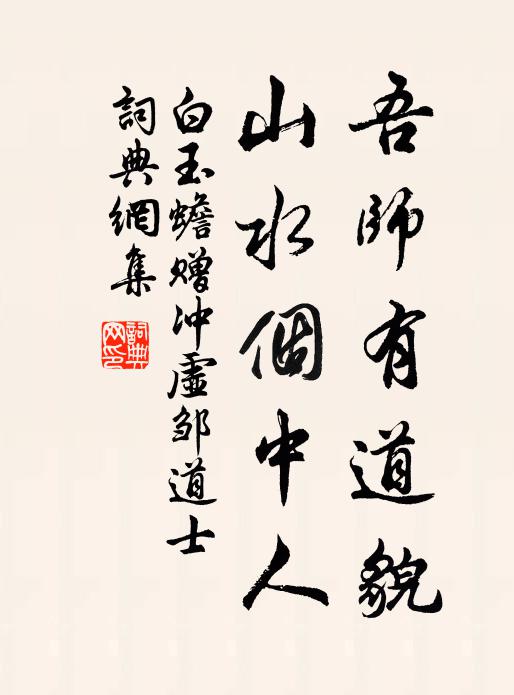 吾師有道貌
山水個中人
白玉蟾赠冲虛邹道士
詞典網集
詞典網印